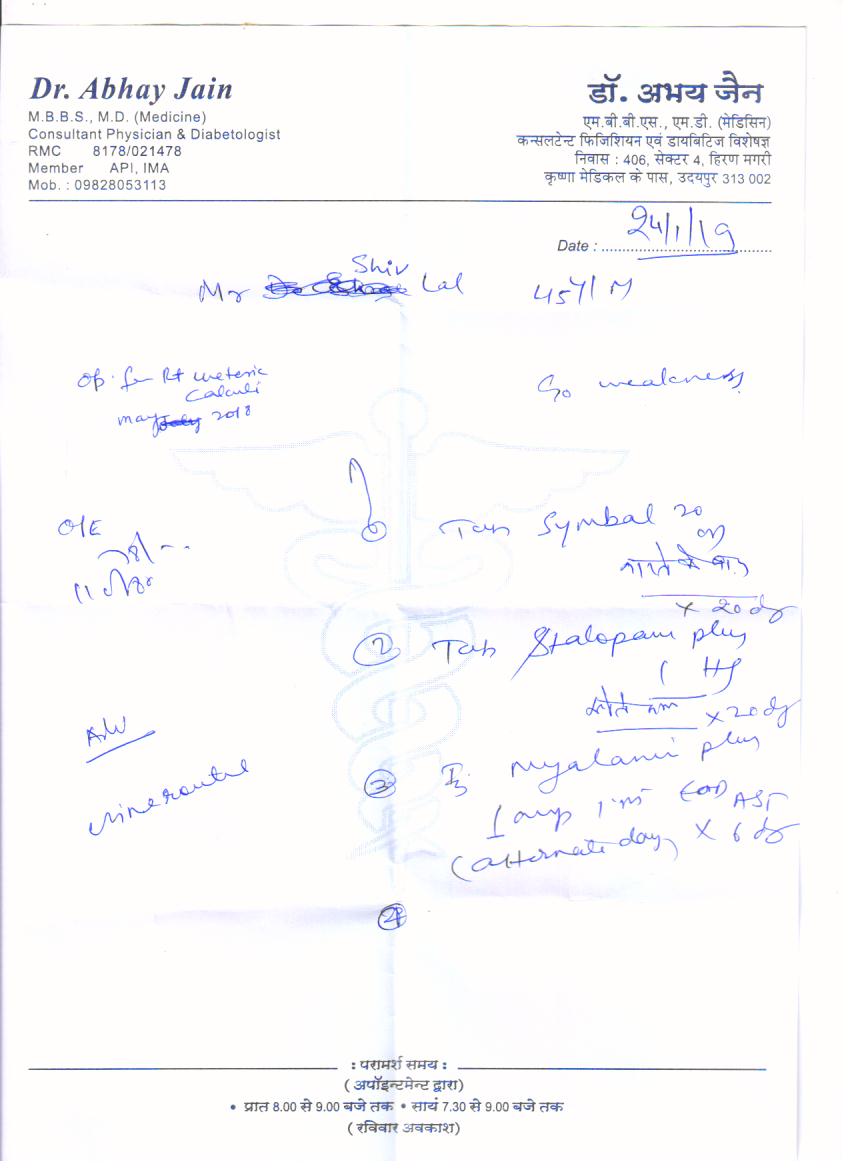 Dr. Abhay Jain
M.B.B.S., M.D. (Medicine)
Consultant Physician & Diabetologist
RMC 8178/021478
Member API, IMA
Mob. : 09828053113
डॉ. अभय जैन
एम.बी.बी.एस., एम.डी. (मेडिसिन)
कन्सलटेन्ट फिजिशियन एवं डायबिटिज विशेषज्ञ
निवास : 406, सेक्टर 4, हिरण मगरी
कृष्णा मेडिकल के पास, उदयपुर 313 002
Date : 24/1/19
Shiv
Mr Lal 45y/M
Op. for Rt ureteric
Calculi
may 2018
C/o weakness
O/E
① Tab Symbal 20
OD
x 20 dy
② Tab Stalopam plus
1 HS
x 20 dy
Adv
urine routine
③ Inj Myalamin plus
1 amp I.M EOD AST
(alternate day) x 6 dy
④
: परामर्श समय :
( अपॉइन्टमेन्ट द्वारा)
• प्रात 8.00 से 9.00 बजे तक • सायं 7.30 से 9.00 बजे तक
( रविवार अवकाश)